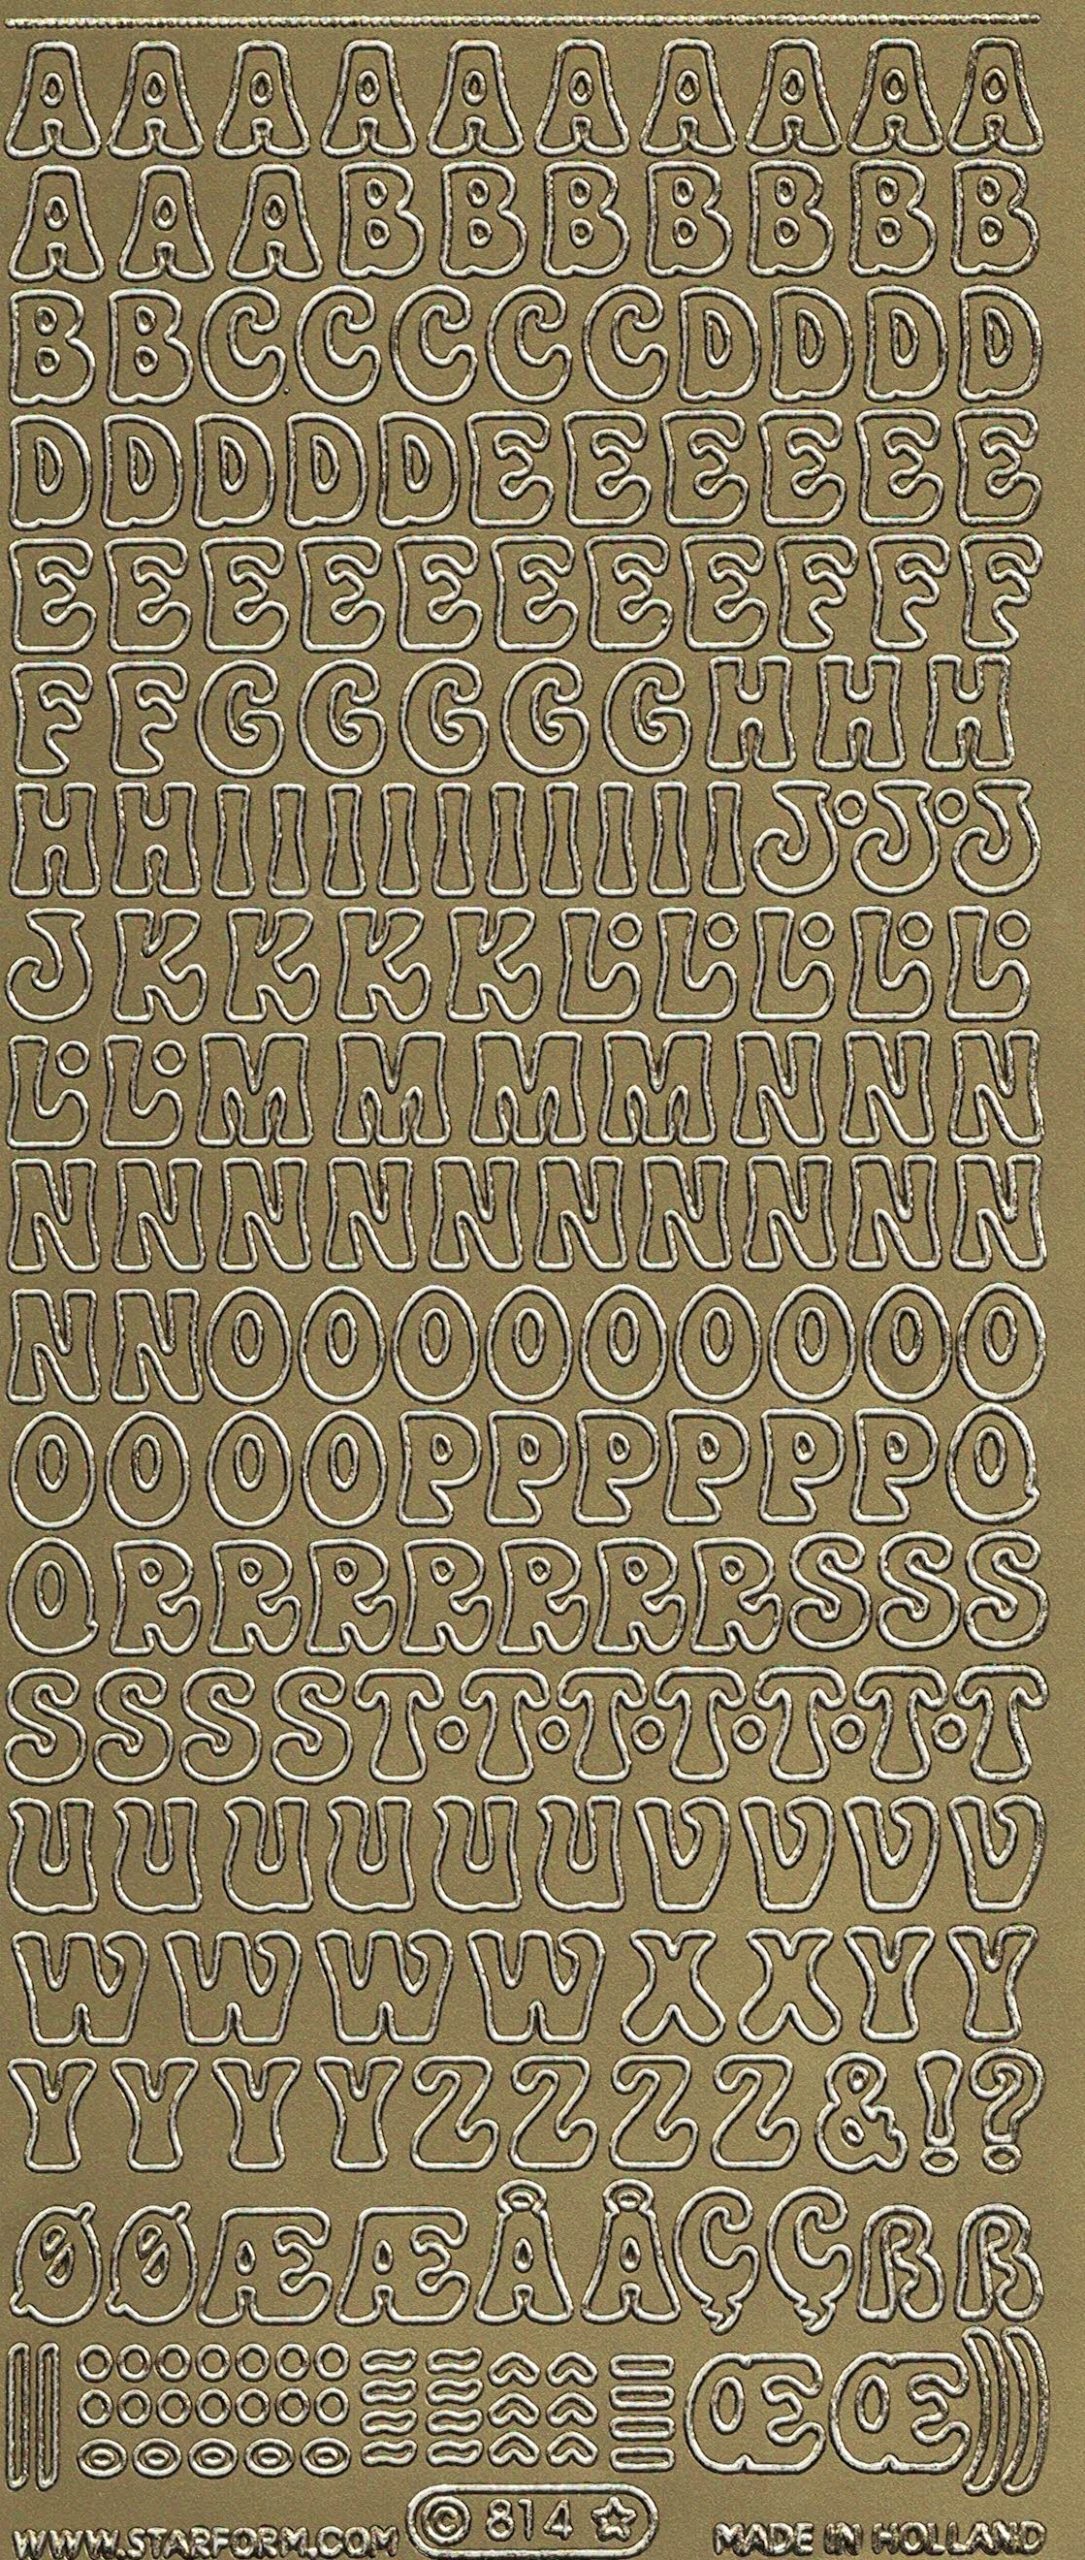 AAAAAAAAAA
AAABBBBBBB
BBCCCCCDDDD
DDDDDEEEEEE
EEEEEEEEFFF
FFGGGGGHHH
HHIIIIIIIIIIJJJ
JKKKKLLLLL
LLMMMMNNN
NNNNNNNNNN
NNOOOOOOOOO
OOOOPPPPPPQ
QRRRRRRRSSS
SSSSTTTTTTT
UUUUUUVVVV
WWWWXXYY
YYYYZZZZ&!?
ØØÆÆÅÅÇÇßß
ŒŒ
WWW.STARFORM.COM © 814 ☆ MADE IN HOLLAND